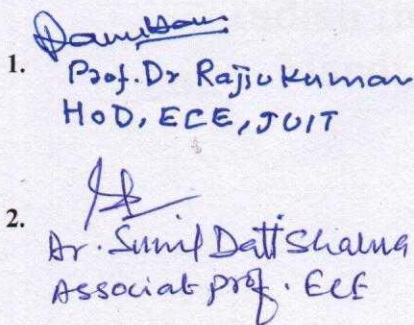 1.
Prof. Dr Rajiv Kumar
HOD, ECE, JUIT
2.
Dr. Sunil Datt Sharma
Associat prof. ECE